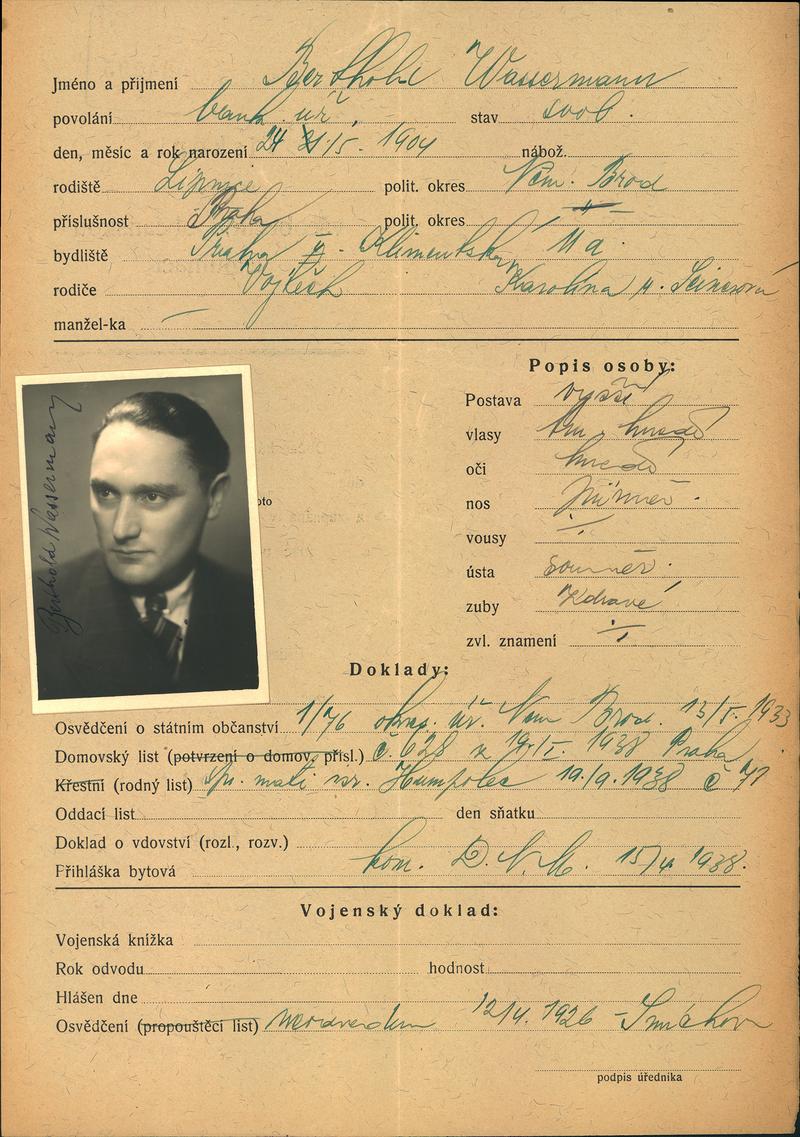 Jméno a přijmení Berthold Wassermann
povolání bank. úř. stav svob.
den, měsíc a rok narození 24 /5. 1904 nábož.
rodiště Lipnice polit. okres Něm. Brod
příslušnost Praha polit. okres —
bydliště Praha II - Klimentská 11 a.
rodiče Vojtěch Karolina r.
manžel-ka —
Popis osoby:
Postava vyšší
vlasy tm. hnědé
oči hnědé
nos přiměř.
vousy ·/·
ústa souměr.
zuby zdravé
zvl. znamení ·/·
oto
Berthold Wassermann
Doklady:
Osvědčení o státním občanství 1/76 okres. úř. Něm. Brod. 13/5. 1933
Domovský list (potvrzení o domov. přísl.) č. 628 z 1938 Praha
Křestní (rodný list) mati Humpolec 19./9. 1938 č 71
Oddací list den sňatku
Doklad o vdovství (rozl., rozv.)
Přihláška bytová kom. 15/4 1938.
Vojenský doklad:
Vojenská knížka
Rok odvodu hodnost
Hlášen dne
Osvědčení (propouštěcí list) neodveden 12/4. 1926 - Smíchov
podpis úředníka